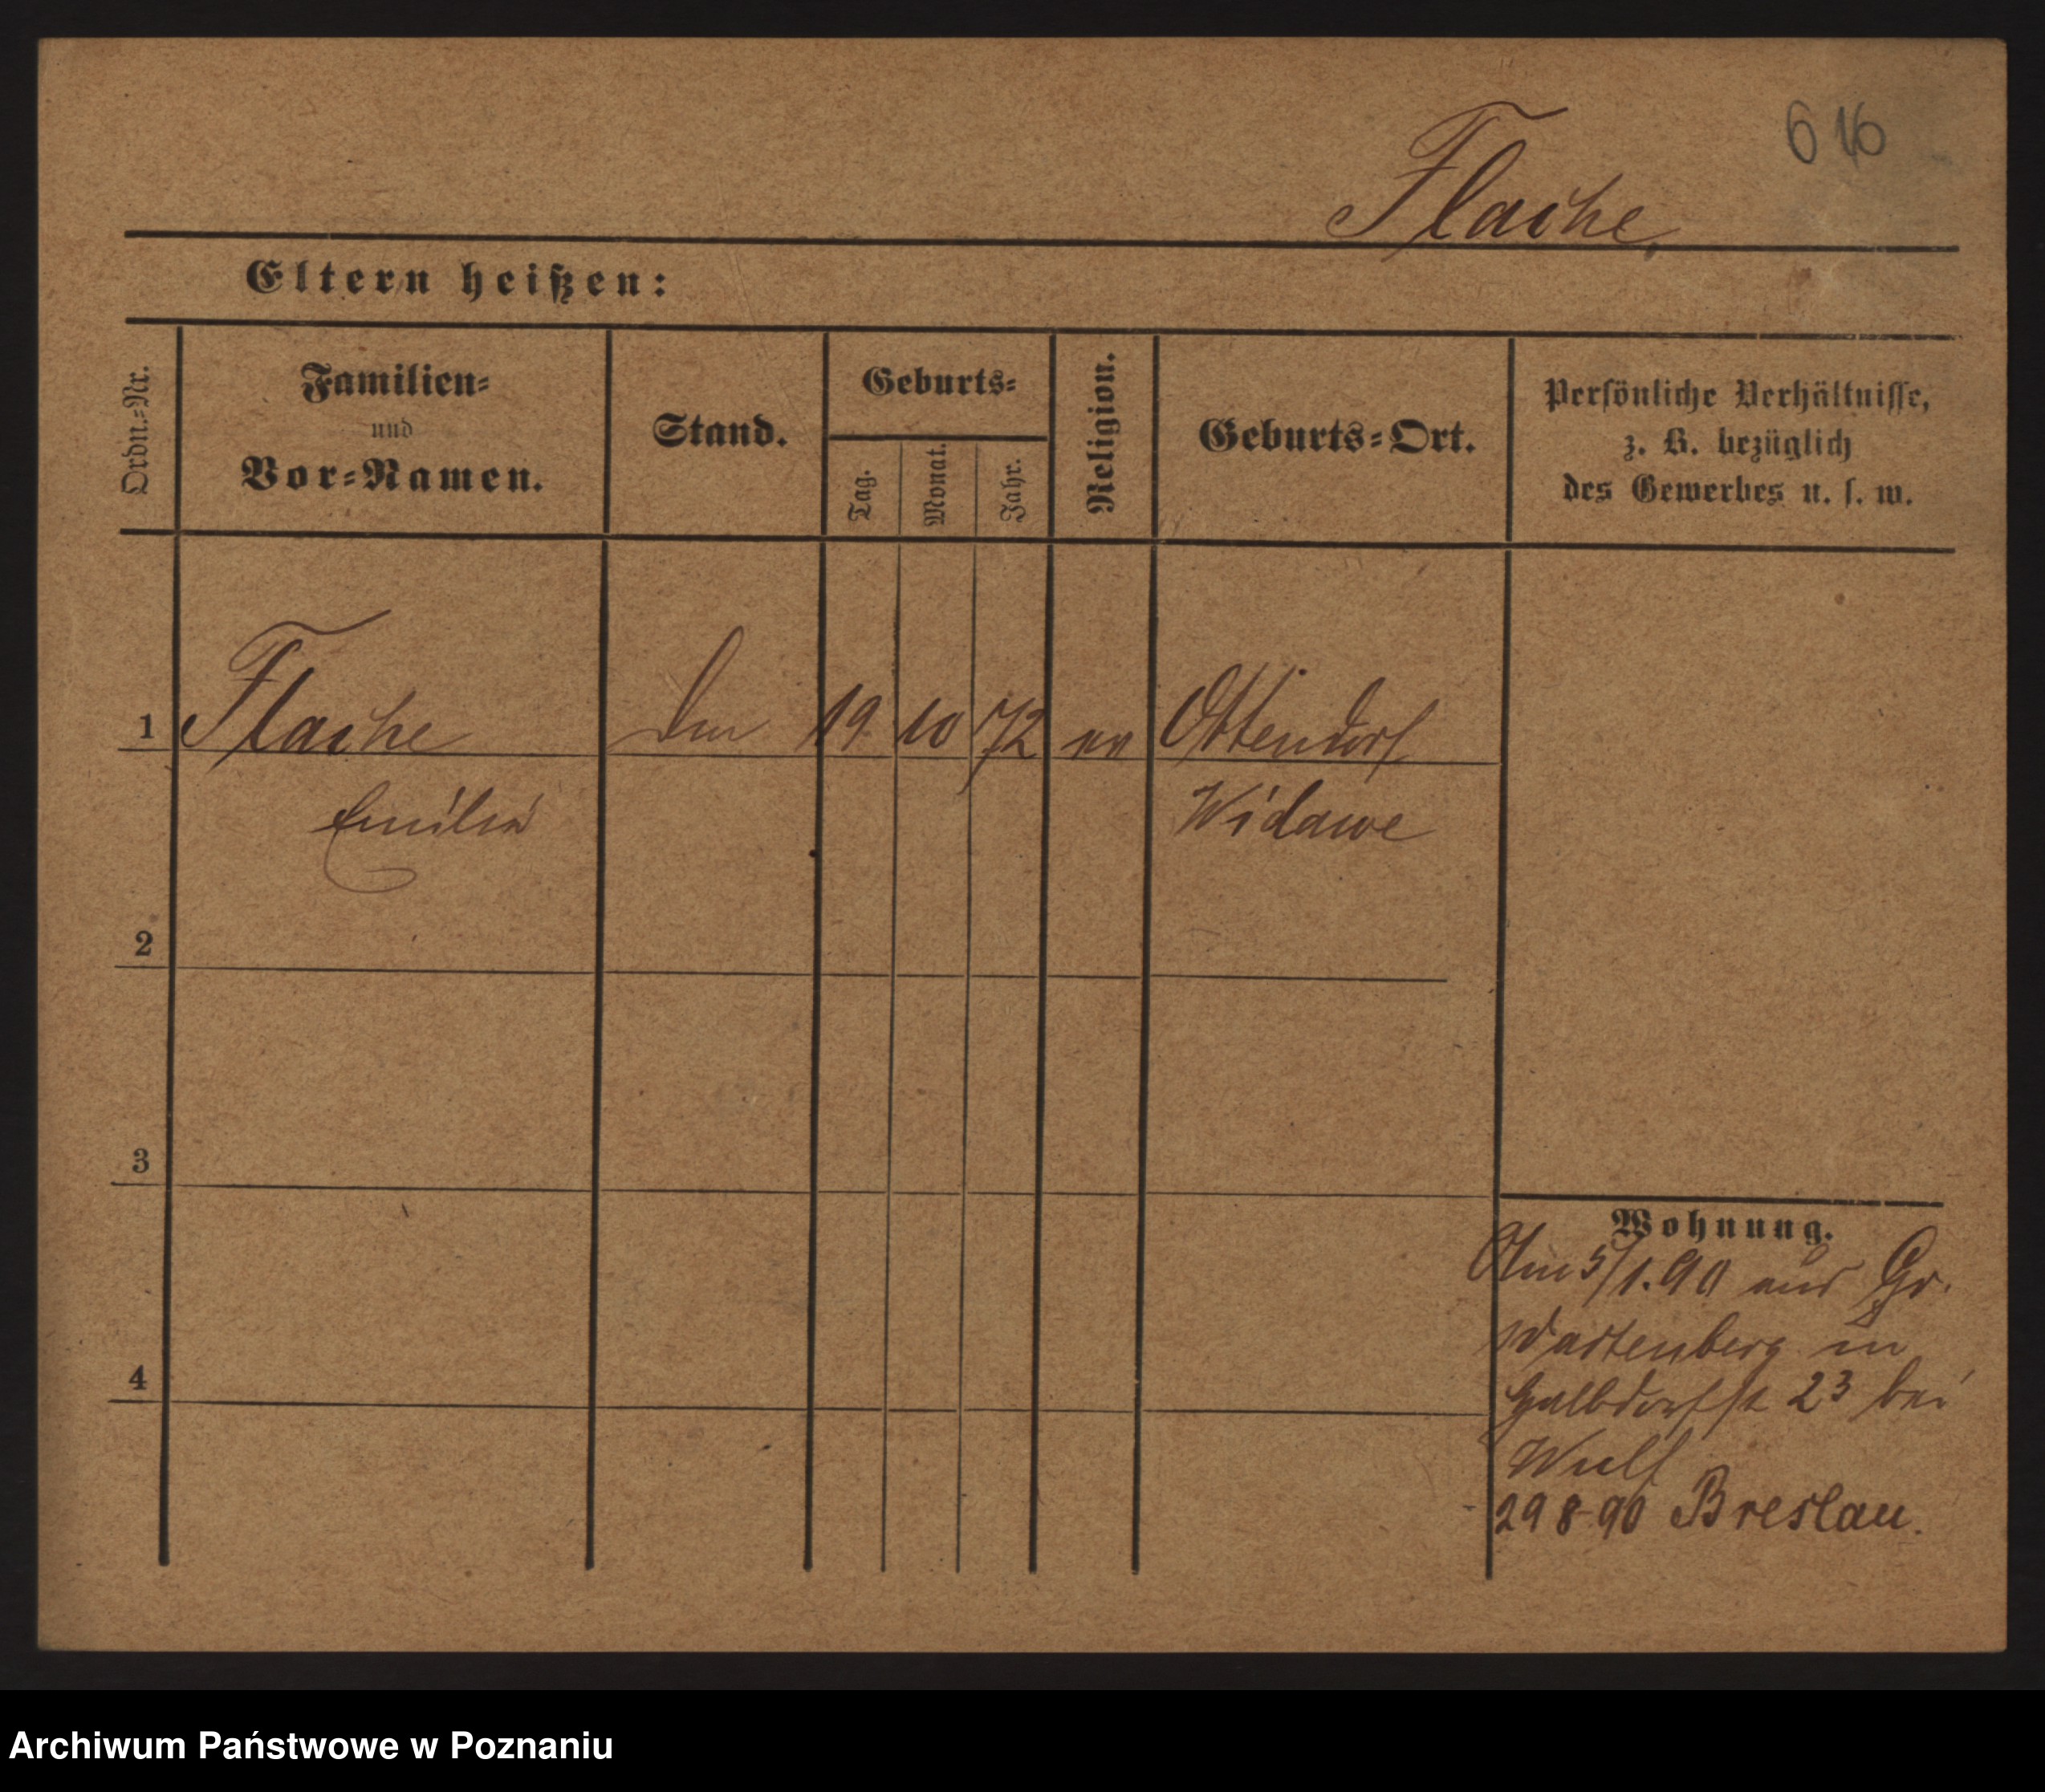 616
Flache
Eltern heißen:
Ordn.=Nr.
Familien=
und
Vor=Namen.
Stand.
Geburts=
Tag.
Monat.
Jahr.
Religion.
Geburts=Ort.
Persönliche Verhältnisse,
z. B. bezüglich
des Gewerbes u. s. w.
1 Flache 19 10 72 Ottendorf
Emilie Widawe
2
3
4
Wohnung.
5/1.90 aus Gr.
Wartenberg in
Halbdorfst 23 bei
Wulf
29 8 90 Breslau.
Archiwum Państwowe w Poznaniu